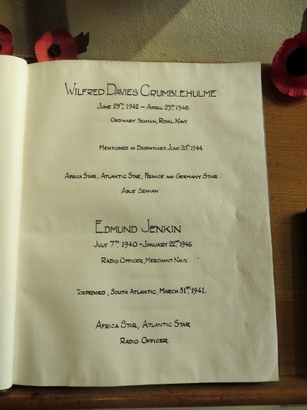 Wilfred Davies Crumblehulme
June 29th, 1942 – April 25th, 1946.
Ordinary Seaman, Royal Navy
Mentioned in Despatches, June 20th, 1944.
Africa Star, Atlantic Star, France and Germany Star
Able Seaman
Edmund Jenkin
July 7th, 1940 – January 22nd, 1946
Radio Officer, Merchant Navy.
Torpedoed, South Atlantic, March 31st, 1941.
Africa Star, Atlantic Star
Radio Officer.